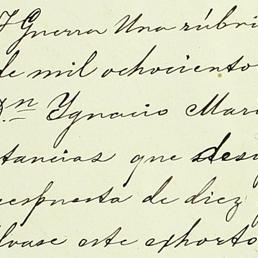 Y Guerra Una rúbri
de mil ochociento
Dn Ygnacio Mari
tancias que desi
respuesta de diez
lvase este exhorto